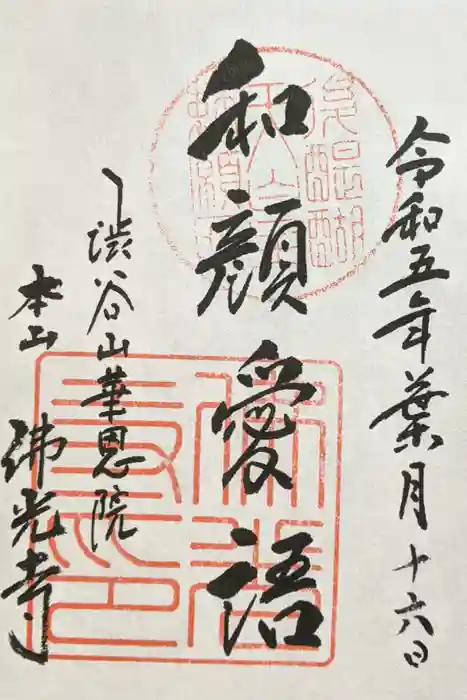 令和五年葉月十六日
和顔愛語
渋谷山華恩院
本山
佛光寺